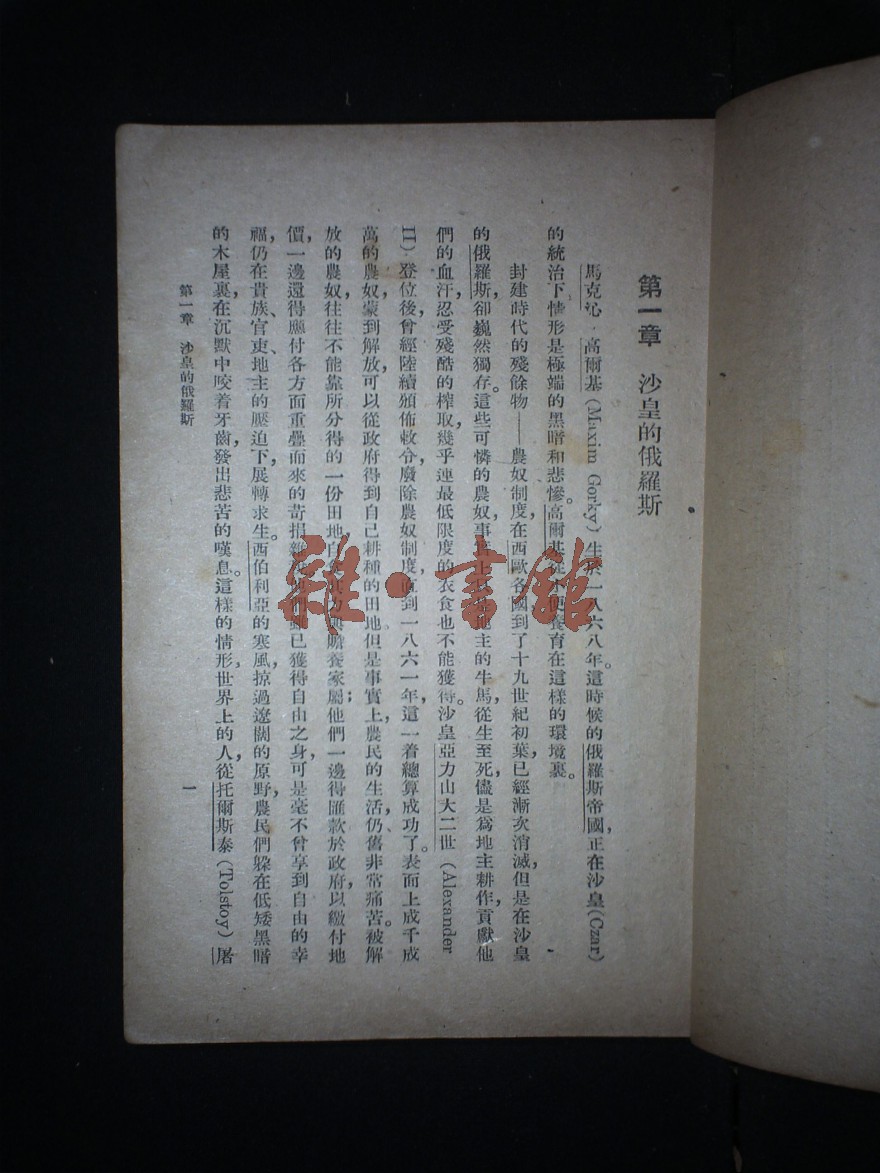 第一章 沙皇的俄羅斯
馬克沁·高爾基(Maxim Gorky)生於一八六八年。這時候的俄羅斯帝國,正在沙皇(Czar)
的統治下,情形是極端的黑暗和悲慘。高爾基從小便養育在這樣的環境裏。
封建時代的殘餘物——農奴制度,在西歐各國到了十九世紀初葉,已經漸次消滅,但是在沙皇
的俄羅斯,卻巍然獨存。這些可憐的農奴,事實上地主的牛馬,從生至死,儘是爲地主耕作,貢獻他
們的血汗,忍受殘酷的榨取,幾乎連最低限度的衣食也不能獲得。沙皇亞力山大二世(Alexander
II)登位後,曾經陸續頒佈敕令,廢除農奴制度,直到一八六一年,這一着總算成功了。表面上成千成
萬的農奴,蒙到解放,可以從政府得到自己耕種的田地。但是事實上,農民的生活,仍舊非常痛苦。被解
放的農奴,往往不能靠所分得的一份田地,自食其力與贍養家屬;他們一邊得匯款於政府,以繳付地
價,一邊還得應付各方面重疊而來的苛捐雜他們雖已獲得自由之身,可是毫不曾享到自由的幸
福,仍在貴族、官吏、地主的壓迫下,展轉求生。西伯利亞的寒風,掠過遼闊的原野,農民們躲在低矮黑暗
的木屋裏,在沉默中咬着牙齒,發出悲苦的嘆息。這樣的情形,世界上的人,從托爾斯泰(Tolstoy)屠
第一章 沙皇的俄羅斯 一
雜·書館